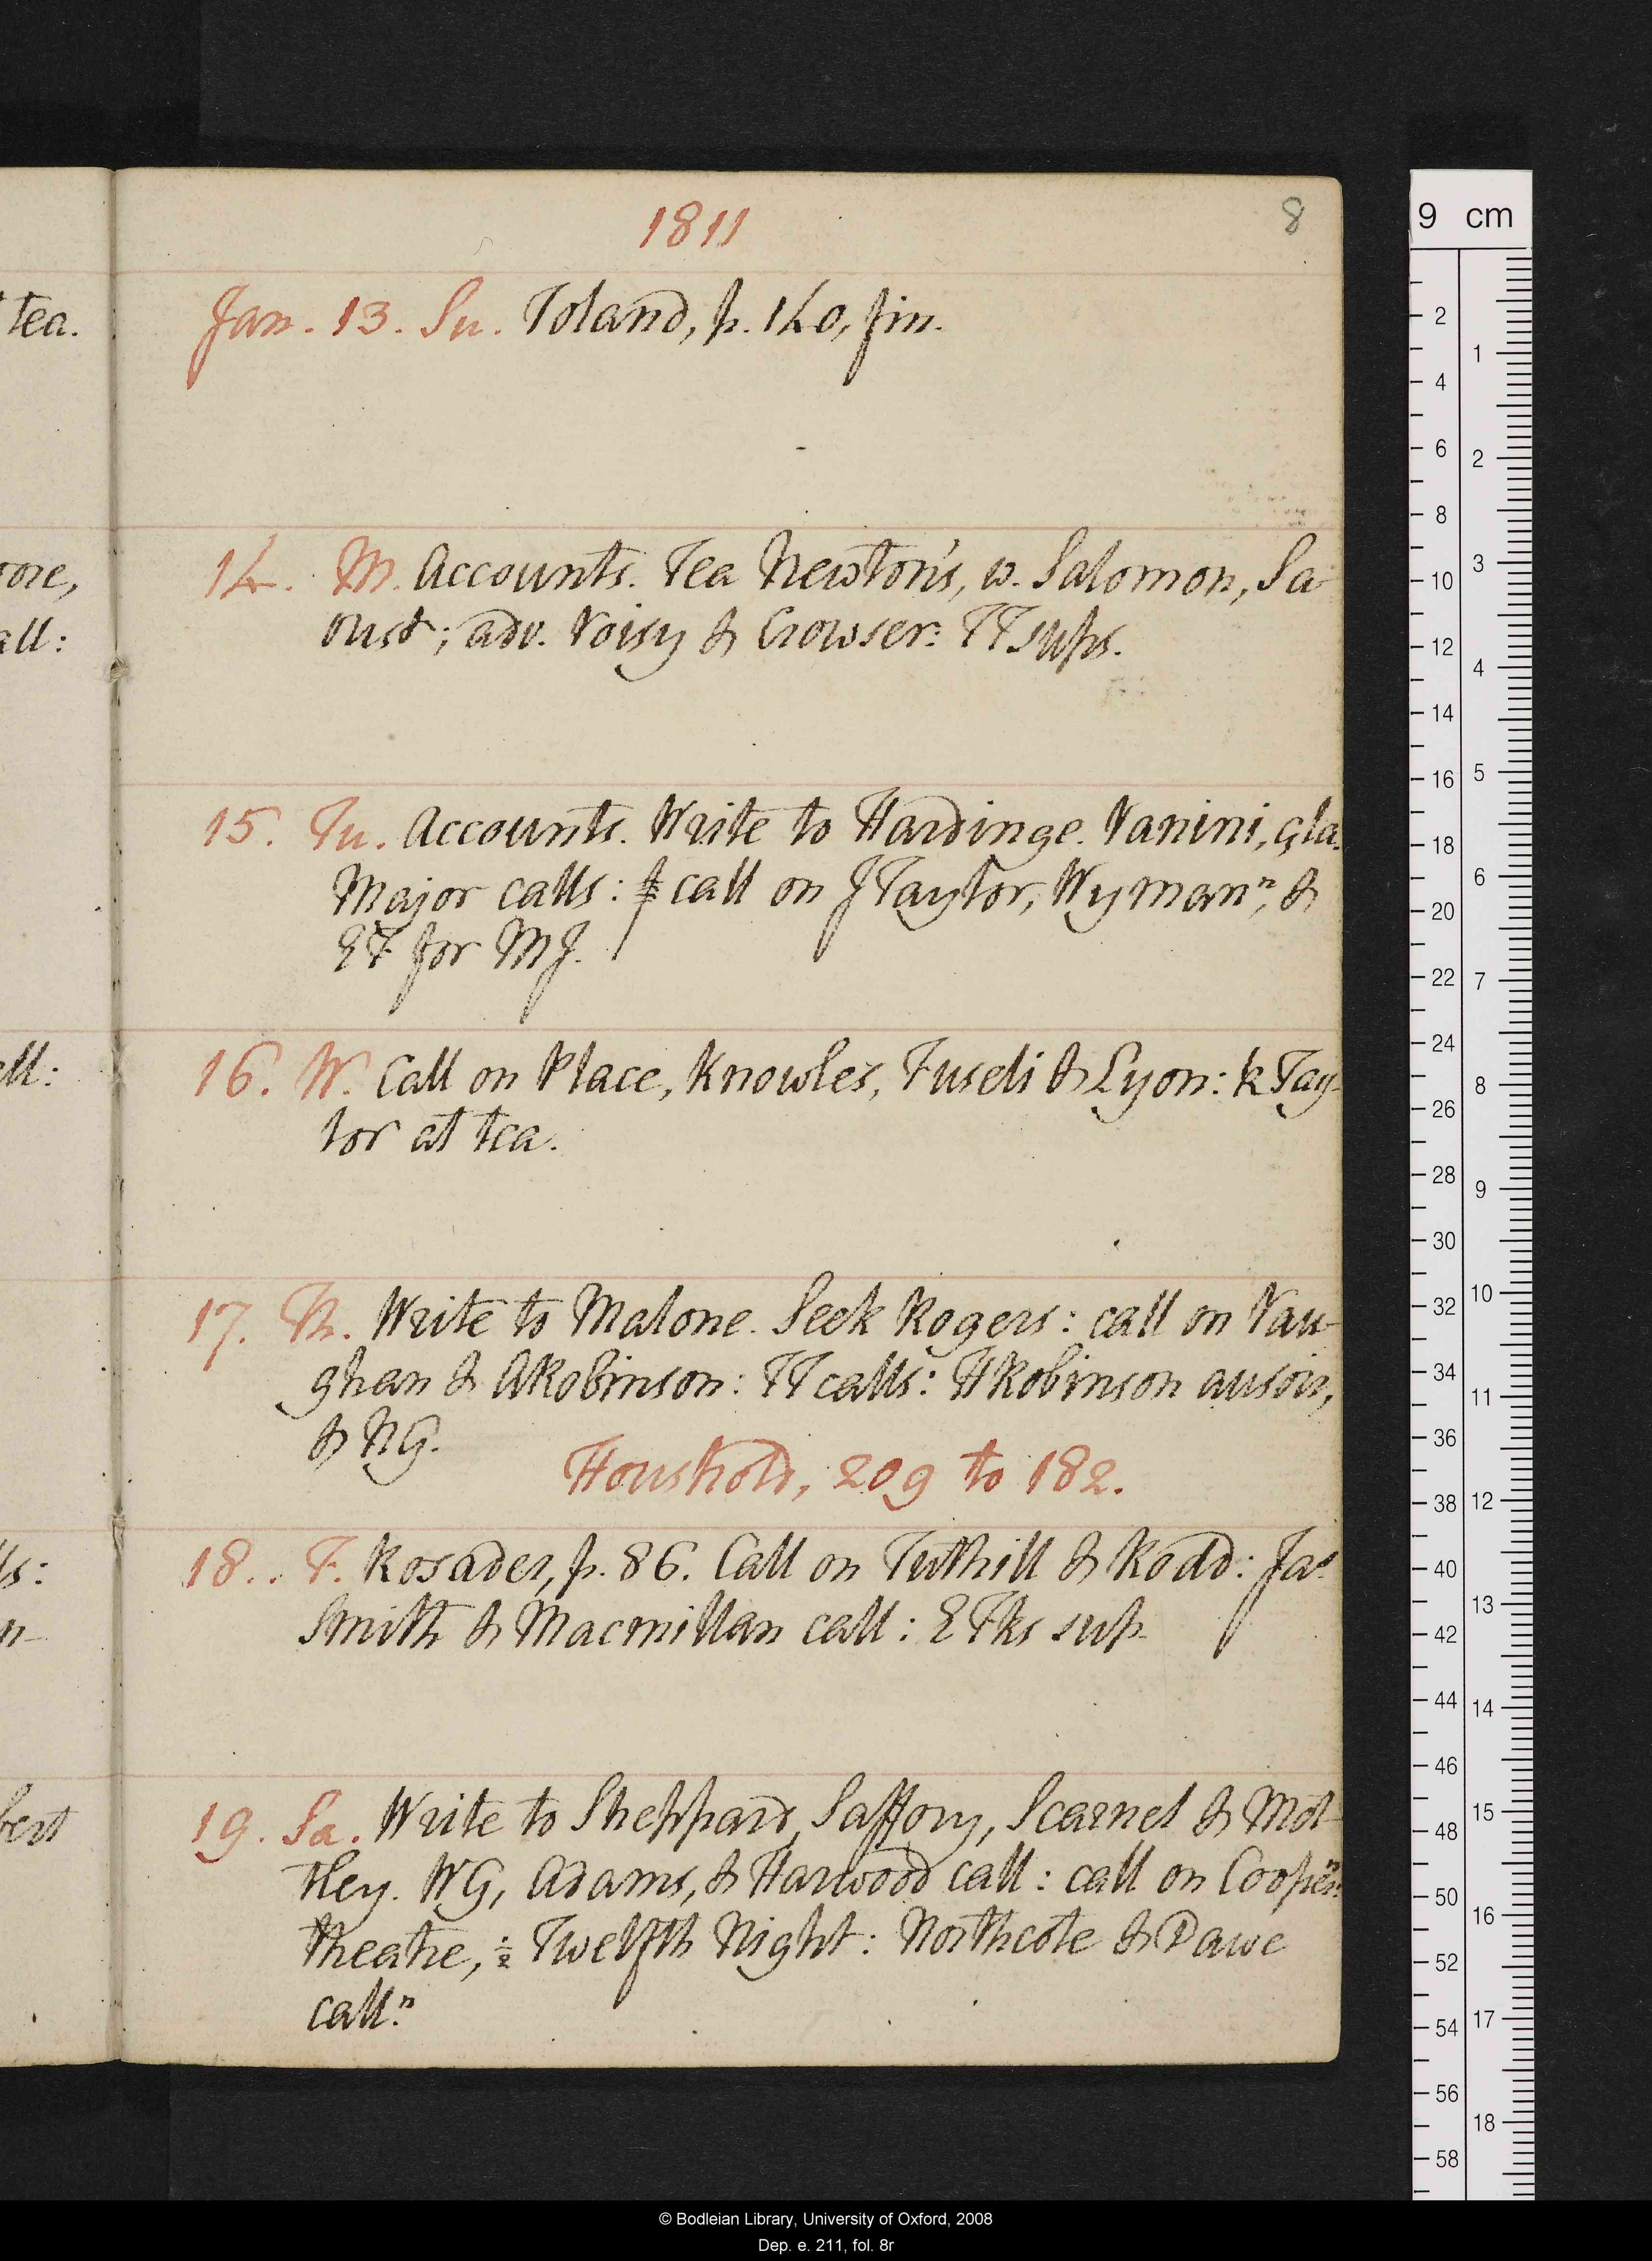 1811
8
tea.
Jan. 13. Su. Toland, p. 140, fin.
14. M. Accounts. Tea Newton's, w. Salomon, Sa
oust; adv. Voisy & Crowser: TT sups.
all:
15. Tu. Accounts. Write to Hardinge. Vanini, çla.
Major calls: call on J Taylor, Wyman n, &
ET for MJ.
16. W. Call on Place, Knowles, Fuseli & Lyon: R Tay-
lor at tea.
17. Th. Write to Malone. Seek Rogers: call on Vau-
ghan & A Robinson: TT calls: H Robinson ausoir,
& NG.
Houshold, 209 to 182.
18. F. Rosader, p. 86. Call on Tuthill & Rodd: Jas
Smith & Macmillan call: E Fks sup.
19. Sa. Write to Sheppard, Saffory, Scarnel & Mot-
tley. WG, Adams, & Harwood call: call on Cooper n:
theatre, ½ Twelfth Night: Northcote & Dawe
call n.
9 cm
2
4
6
8
10
12
14
16
18
20
22
24
26
28
30
32
34
36
38
40
42
44
46
48
50
52
54
56
58
1
2
3
4
5
6
7
8
9
10
11
12
13
14
15
16
17
18
© Bodleian Library, University of Oxford, 2008
Dep. e. 211, fol. 8r